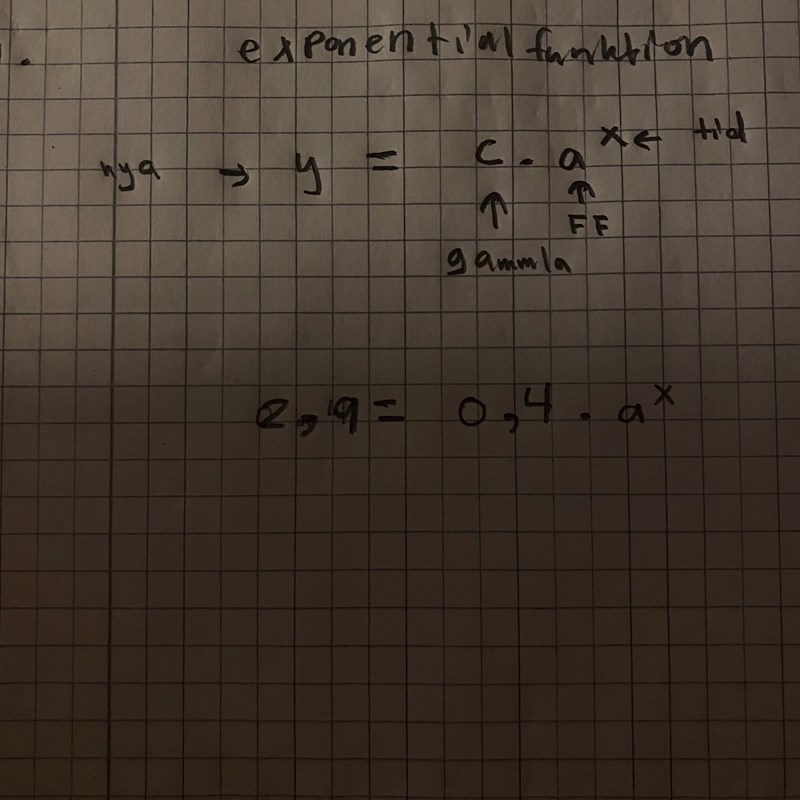 . exponential funktion
nya → y = C · a^x ← tid
↑ ↑
FF
gammla
2,9 = 0,4 · a^x